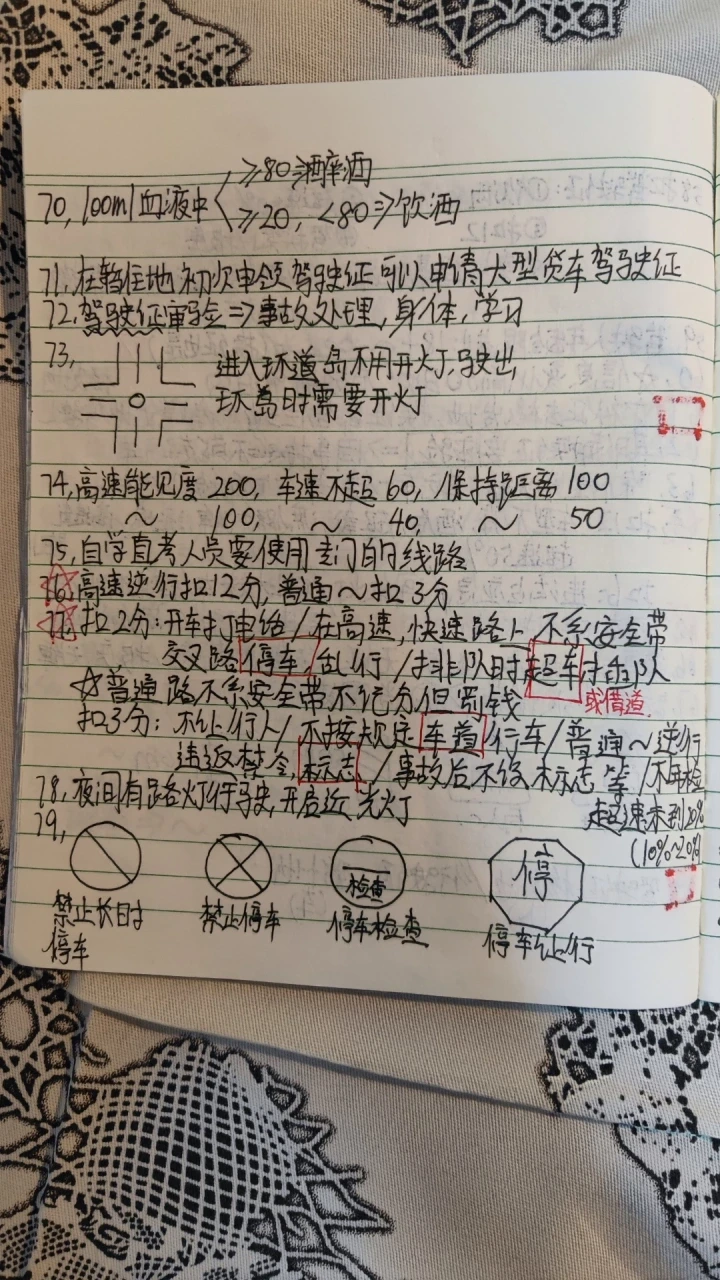 70, 100ml血液中 ≥80⇒醉酒
≥20, <80⇒饮酒
71, 在暂住地初次申领驾驶证可以申请大型货车驾驶证
72, 驾驶证审验⇒事故处理, 身体, 学习
73, 进入环道岛不用开灯, 驶出
环岛时需要开灯
74, 高速能见度 200, 车速不超 60, 保持距离 100
～ 100, ～ 40, ～ 50
75, 自学直考人员要使用专门的线路
76, 高速逆行扣12分, 普通～扣3分
77, 扣2分: 开车打电话/在高速, 快速路上, 不系安全带
交叉路停车, 乱行/排非队时超车插队
或借道
☆普通路不系安全带不记分但罚钱
扣3分: 不让行人/不按规定车道行车/普通～逆行
违返禁令, 标志/事故后不设标志等/不年检
78, 夜间有路灯行驶, 开启近光灯
超速未到20%
(10%~20%)
79,
检查
停
禁止长时
停车
禁止停车
停车检查
停车让行